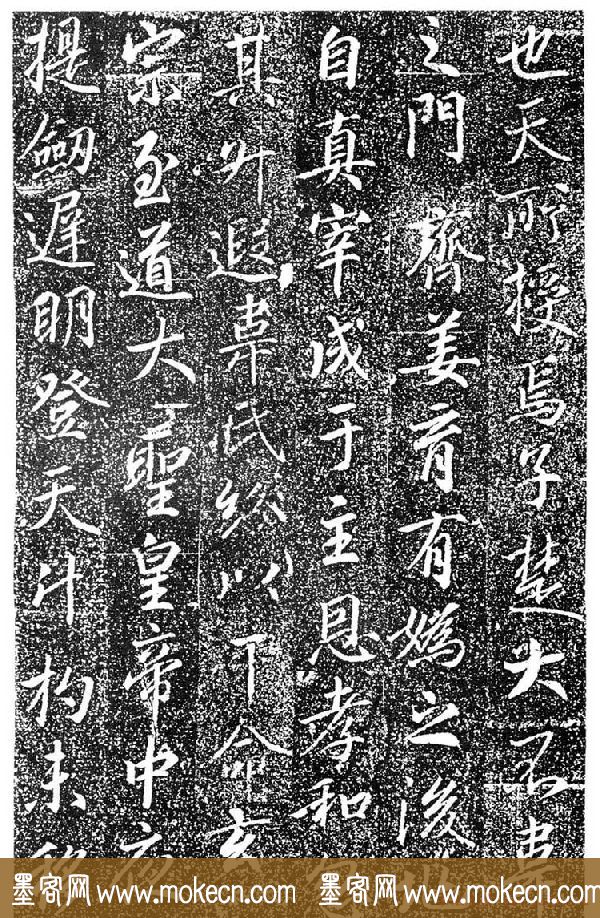 也天所授焉子楚大不韋
之門齊姜育有媯之後
自真宰成于主恩孝和
其升遐韋氏総以下命玄
宗至道大聖皇帝中夜
提劔遲明登天斗杓未
墨客网 www.mokecn.com 墨客网 www.mokecn.com